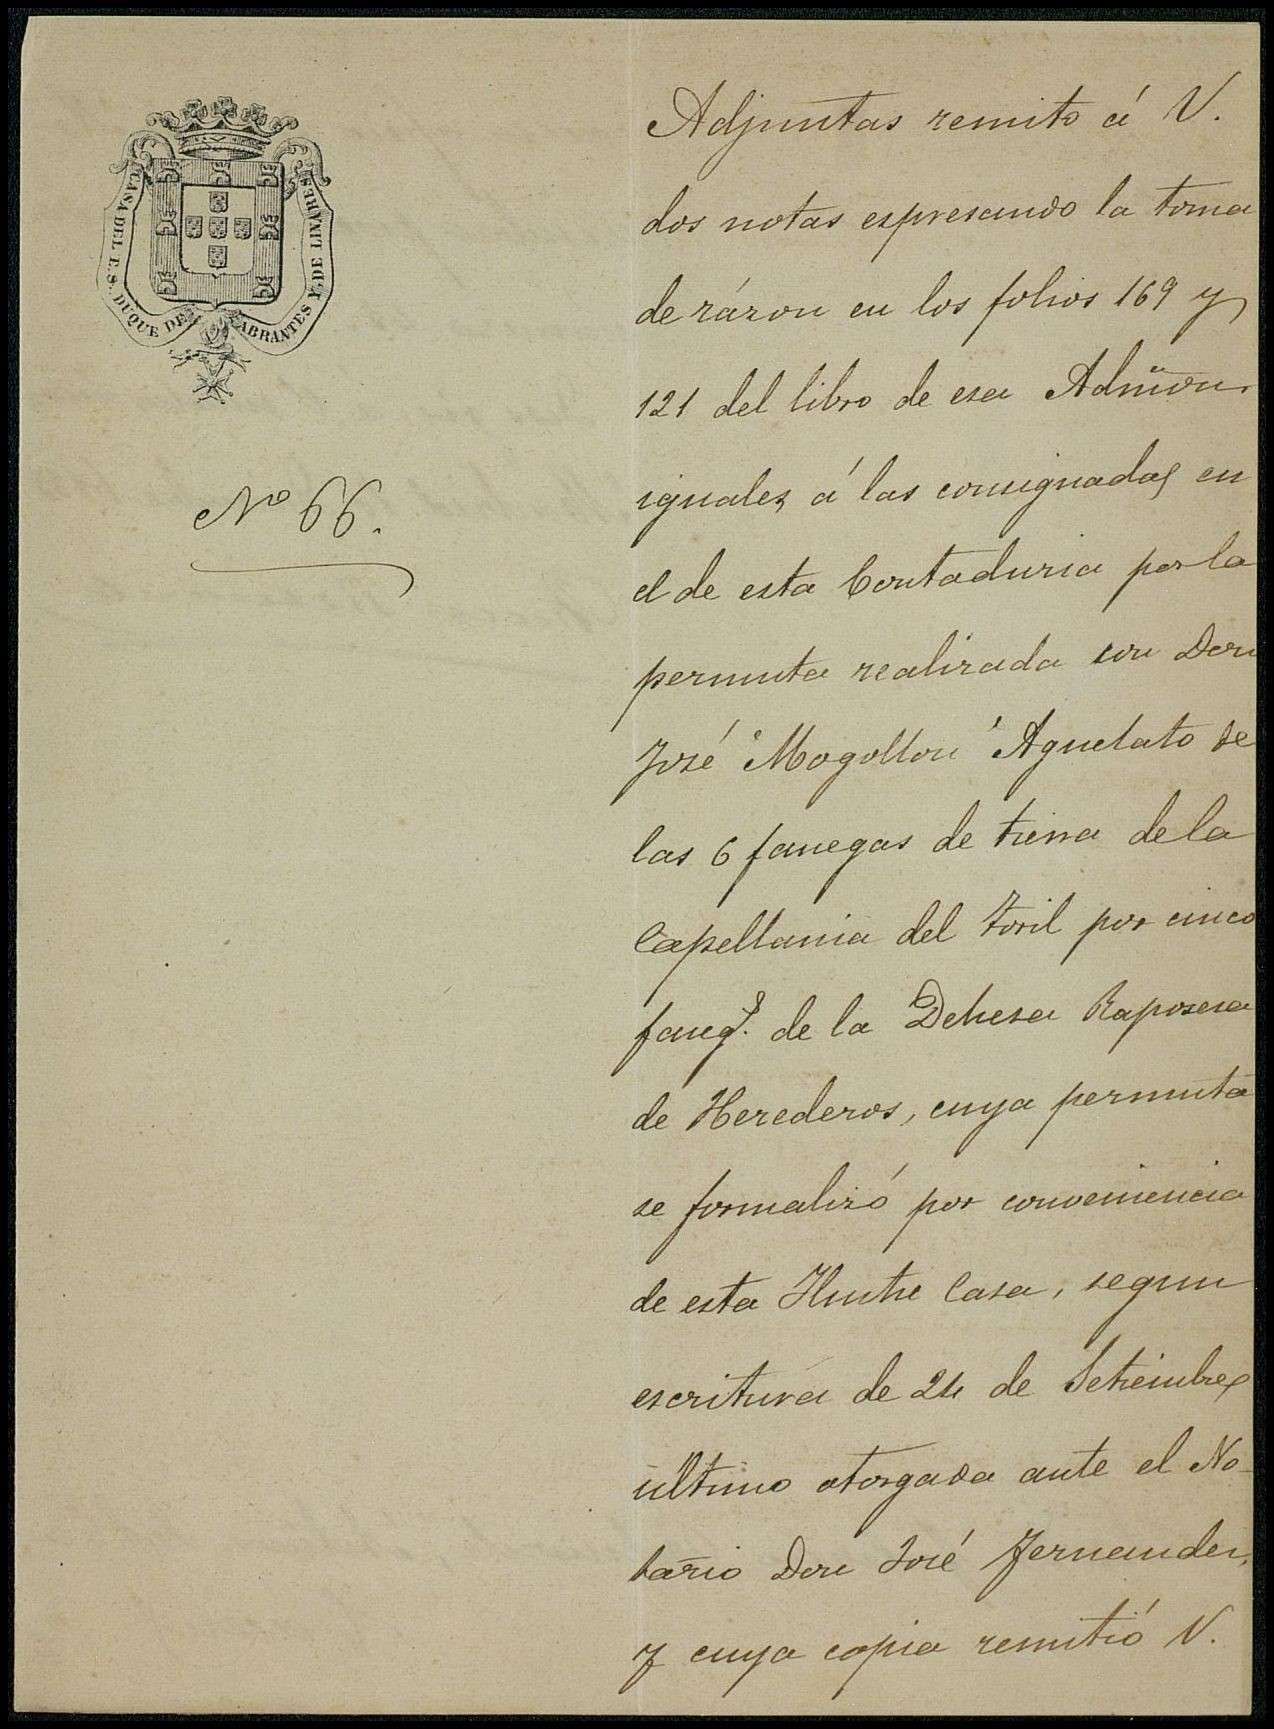 CASA DEL E. S. DUQUE DE ABRANTES Y DE LINARES
Nº 66.
Adjuntas remito á V.
dos notas espresando la toma
de rázon en los folios 169 y
121 del libro de esa Admon.
iguales á las consignadas en
el de esta Contaduria por la
permuta realizada con Don
José Mogollon Aguelato de
las 6 fanegas de tierra de la
Capellania del Toril por cinco
faneg.s de la Dehesa Raposera
de Herederos, cuya permuta
se formalizó por conveniencia
de esta Ilustre Casa, segun
escritura de 24 de Setiembre
ultimo otorgada ante el No-
tario Don José Fernandez,
y cuya copia remitió V.